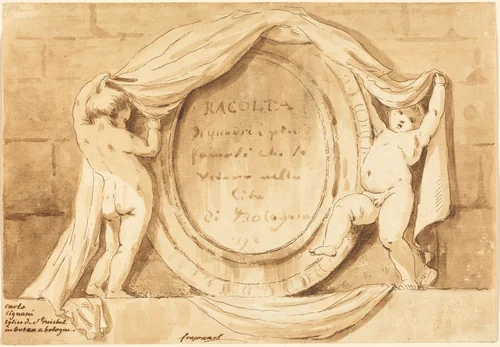 RACOLTA
di quadri i piu
famosi che se
vedano nella
Cita
di Bologna
carlo
Cignani
Eglise de St Michel
in bosco a bologne.
fragonard